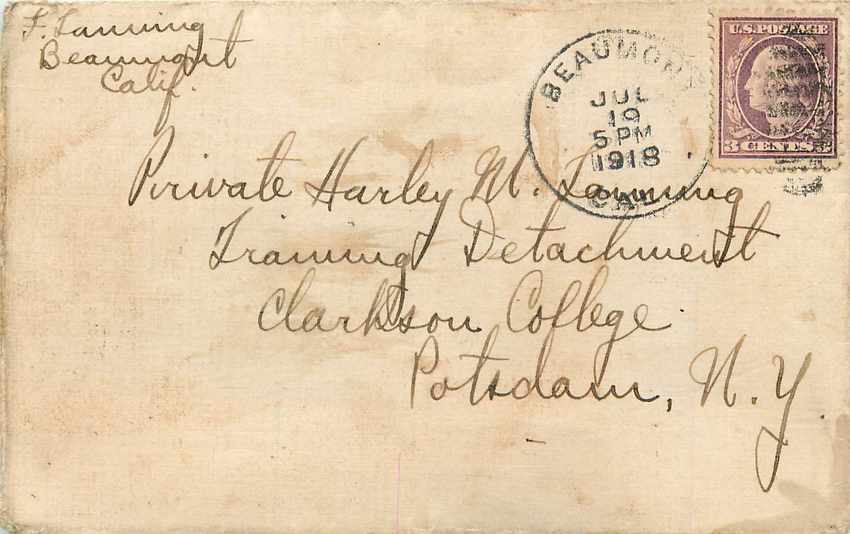 F. Lanning
Beaumont
Calif.
BEAUMONT
JUL
19
5 PM
1918
CAL.
U.S. POSTAGE
3 CENTS 3
Private Harley M. Lanning
Training Detachment
Clarkson College
Potsdam, N.Y.